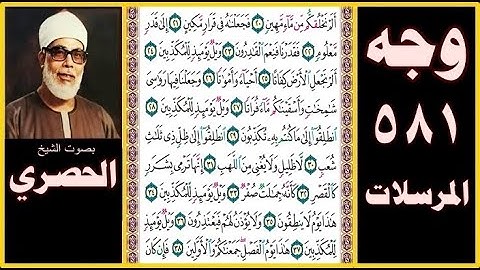 وجه
٥٨١
المرسلات
أَلَمْ نَخْلُقكُّم مِّن مَّآءٍ مَّهِينٍ ٢٠ فَجَعَلْنَٰهُ فِي قَرَارٍ مَّكِينٍ ٢١ إِلَىٰ قَدَرٍ
مَّعْلُومٍ ٢٢ فَقَدَرْنَا فَنِعْمَ ٱلْقَٰدِرُونَ ٢٣ وَيْلٌ يَوْمَئِذٍ لِّلْمُكَذِّبِينَ ٢٤
أَلَمْ نَجْعَلِ ٱلْأَرْضَ كِفَاتًا ٢٥ أَحْيَآءً وَأَمْوَٰتًا ٢٦ وَجَعَلْنَا فِيهَا رَوَٰسِيَ
شَٰمِخَٰتٍ وَأَسْقَيْنَٰكُم مَّآءً فُرَاتًا ٢٧ وَيْلٌ يَوْمَئِذٍ لِّلْمُكَذِّبِينَ ٢٨
ٱنطَلِقُوٓا۟ إِلَىٰ مَا كُنتُم بِهِۦ تُكَذِّبُونَ ٢٩ ٱنطَلِقُوٓا۟ إِلَىٰ ظِلٍّ ذِي ثَلَٰثِ
شُعَبٍ ٣٠ لَّا ظَلِيلٍ وَلَا يُغْنِي مِنَ ٱللَّهَبِ ٣١ إِنَّهَا تَرْمِي بِشَرَرٍ
كَٱلْقَصْرِ ٣٢ كَأَنَّهُۥ جِمَٰلَتٌ صُفْرٌ ٣٣ وَيْلٌ يَوْمَئِذٍ لِّلْمُكَذِّبِينَ ٣٤
هَٰذَا يَوْمُ لَا يَنطِقُونَ ٣٥ وَلَا يُؤْذَنُ لَهُمْ فَيَعْتَذِرُونَ ٣٦ وَيْلٌ يَوْمَئِذٍ
لِّلْمُكَذِّبِينَ ٣٧ هَٰذَا يَوْمُ ٱلْفَصْلِ جَمَعْنَٰكُمْ وَٱلْأَوَّلِينَ ٣٨ فَإِن كَانَ
بصوت الشيخ
الحصري